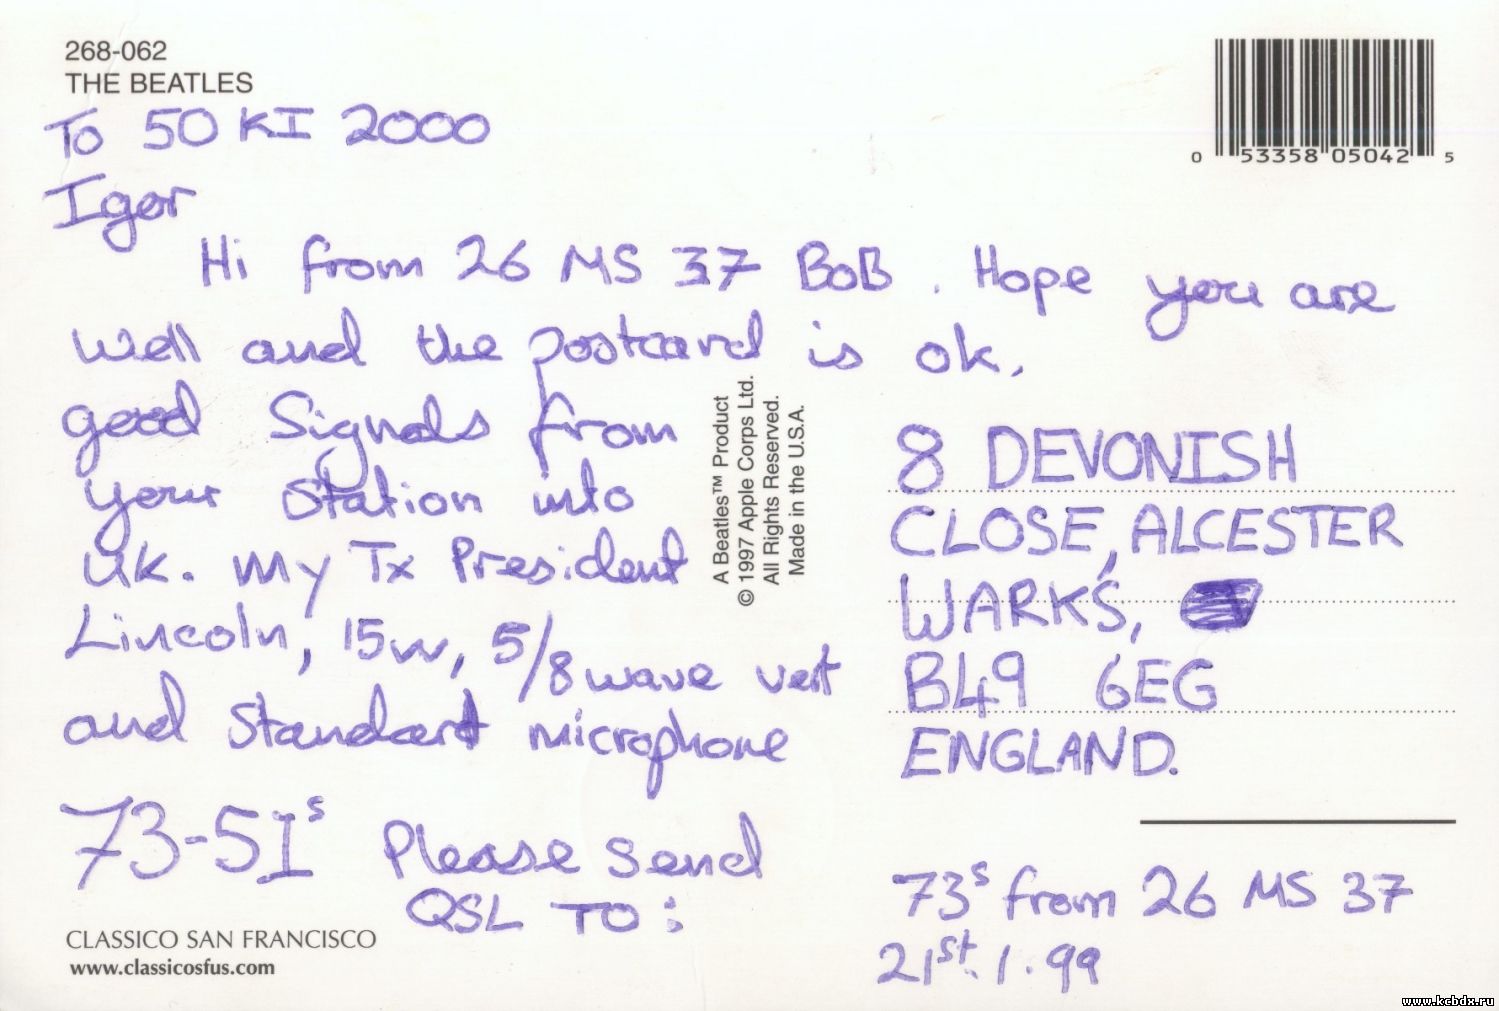 268-062
THE BEATLES
0 53358 05042 5
To 50 KI 2000
Igor
Hi from 26 MS 37 BoB. Hope you are
well and the postcard is ok,
good Signals from
your Station into
UK. My Tx President
Lincoln, 15w, 5/8 wave vert
and Standard microphone
73-51s Please send
QSL TO:
CLASSICO SAN FRANCISCO
www.classicosfus.com
A Beatles™ Product
© 1997 Apple Corps Ltd.
All Rights Reserved.
Made in the U.S.A.
8 DEVONISH
CLOSE, ALCESTER
WARKS,
B49 6EG
ENGLAND.
73s from 26 MS 37
21st.1.99
www.kcbdx.ru